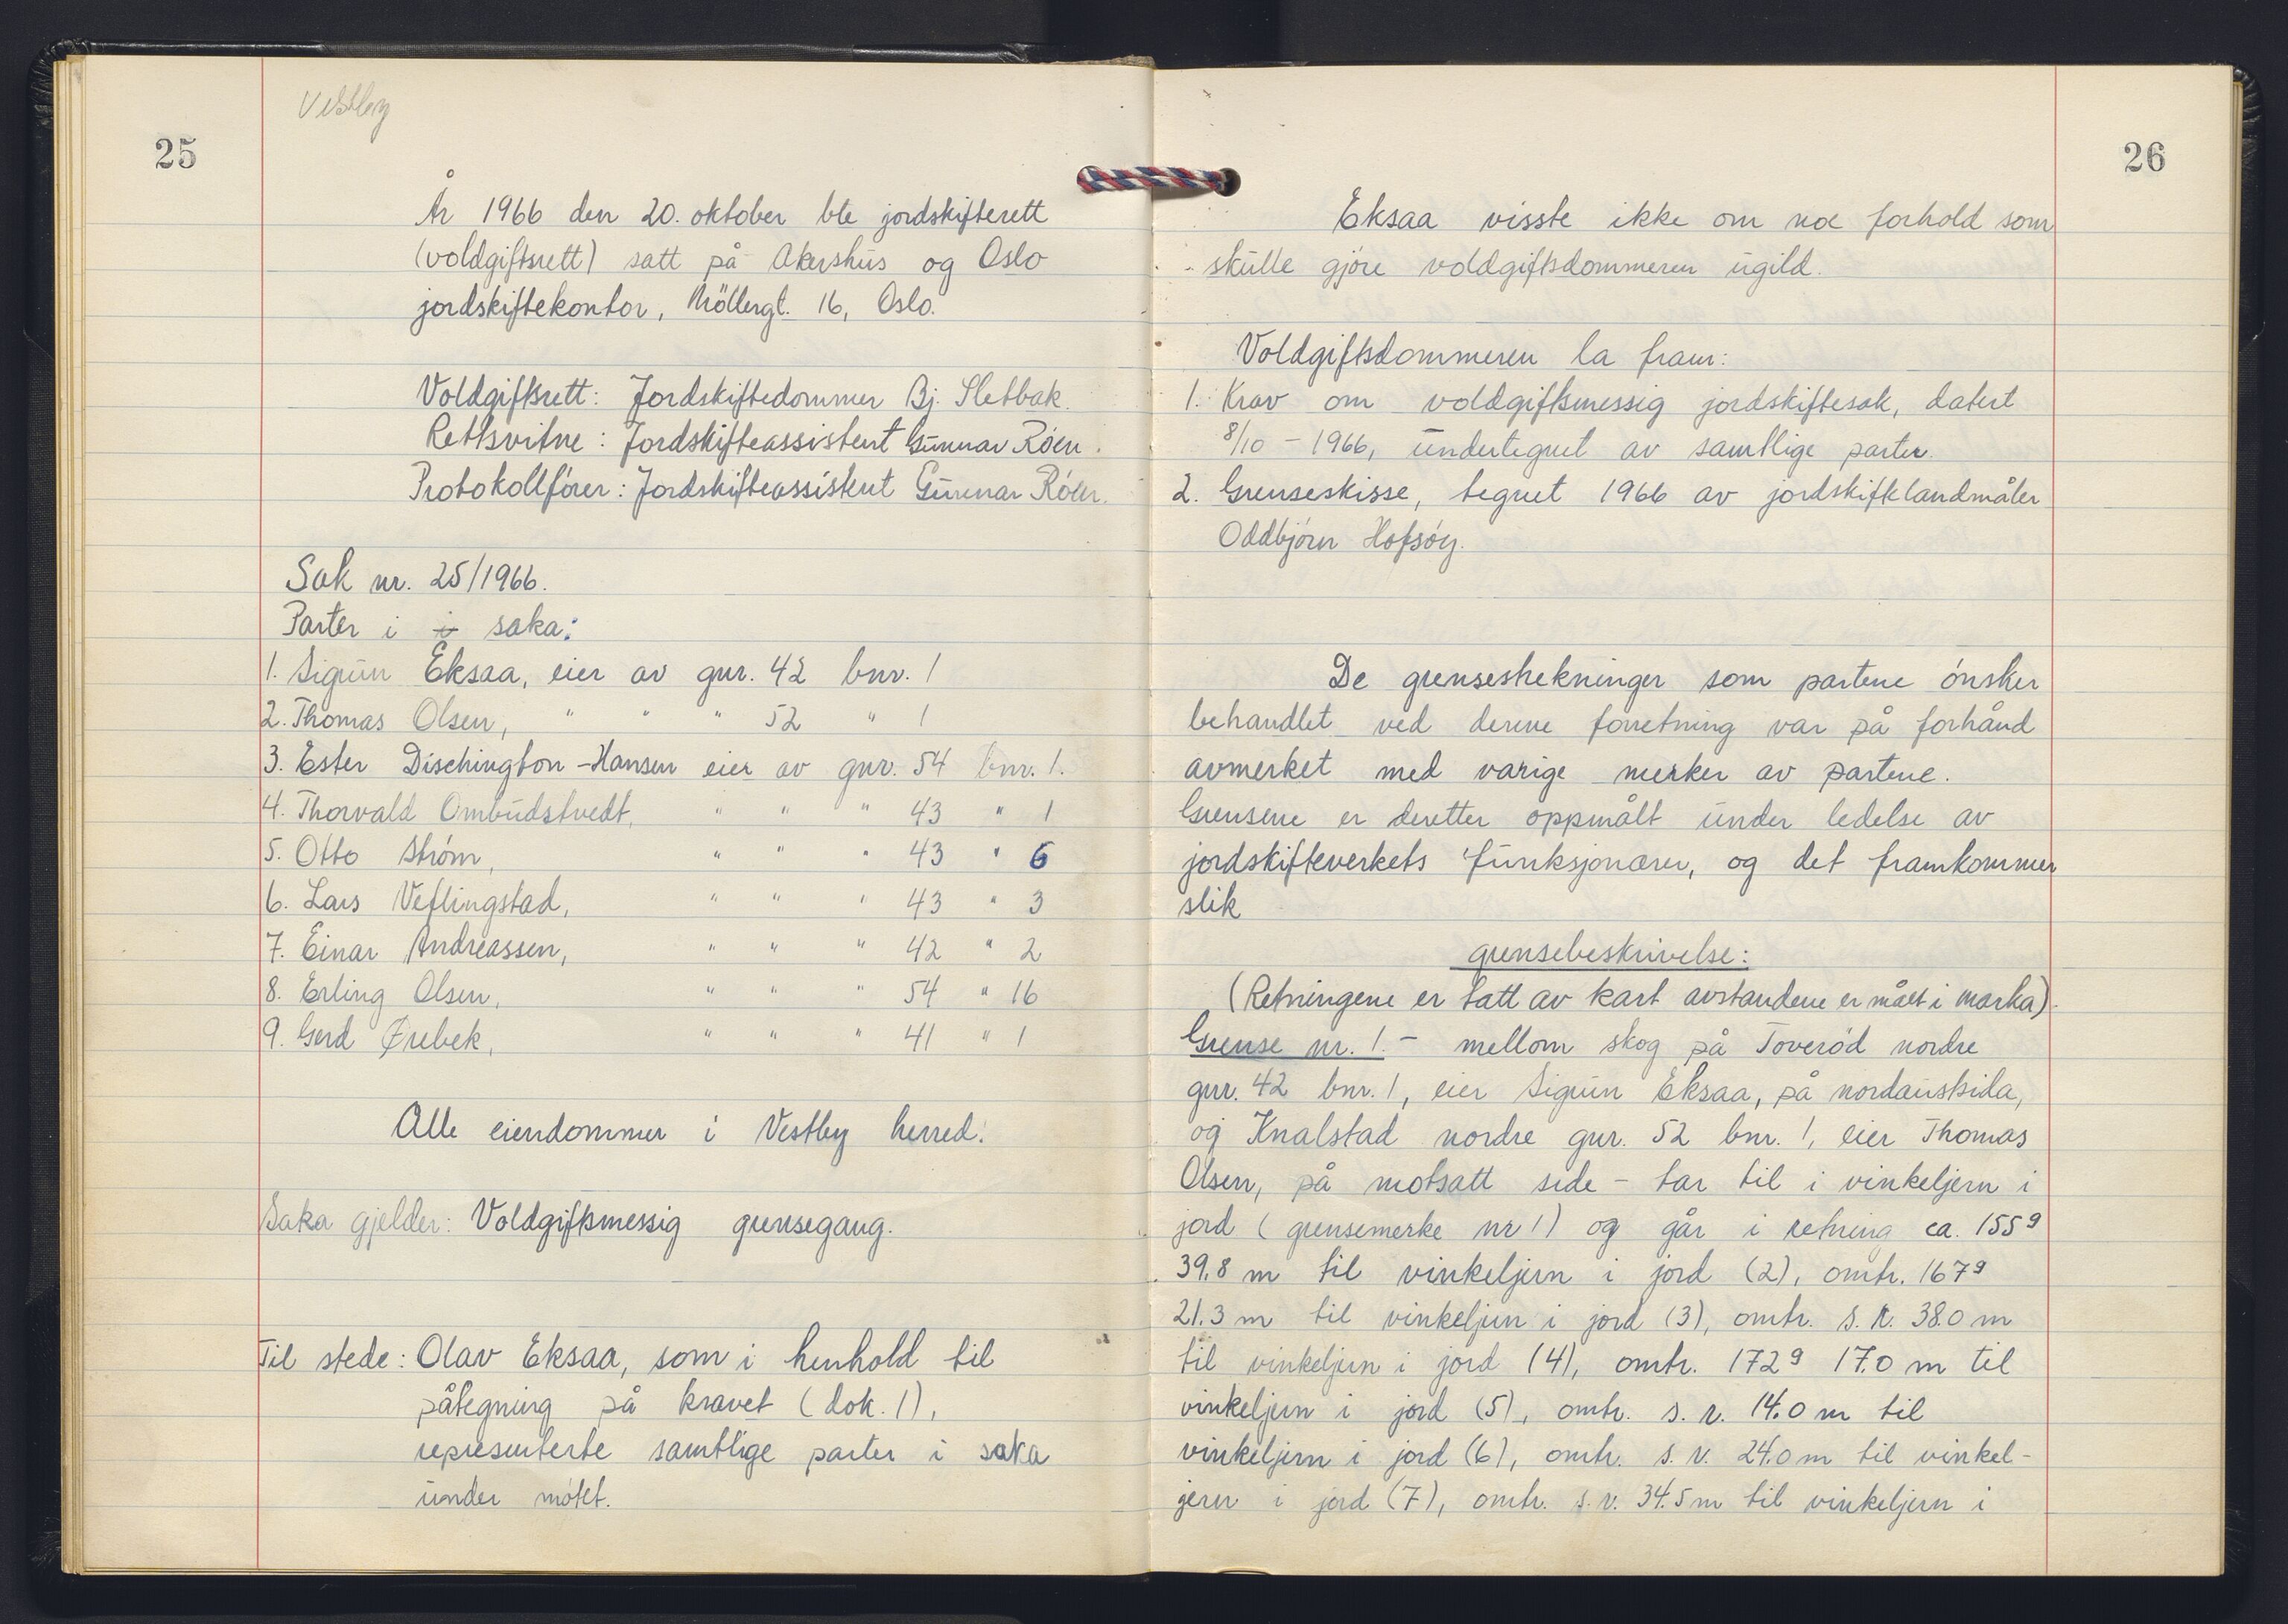 Vestby
25
År 1966 den 20. oktober ble jordskifterett
(voldgiftsrett) satt på Akershus og Oslo
jordskiftekontor, Möllergt. 16, Oslo.
Voldgiftsrett: Jordskiftedommer Bj. Sletbak.
Rettsvitne: Jordskifteassistent Gunnar Röen.
Protokollförer: Jordskifteassistent Gunnar Röen.
Sak nr. 25/1966.
Parter i i saka:
1. Sigrun Eksaa, eier av gnr. 42 bnr. 1
2. Thomas Olsen, " " " 52 " 1
3. Ester Dischington-Hansen eier av gnr. 54 bnr. 1.
4. Thorvald Ombudstvedt, " " " 43 " 1
5. Otto Ström, " " " 43 " 6
6. Lars Veflingstad, " " " 43 " 3
7. Einar Andreassen, " " " 42 " 2
8. Erling Olsen, " " " 54 " 16
9. Gerd Ørebek, " " " 41 " 1
Alle eiendommer i Vestby herred.
Saka gjelder: Voldgiftsmessig grensegang.
Til stede: Olav Eksaa, som i henhold til
påtegning på kravet (dok. 1),
representerte samtlige parter i saka
under mötet.
26
Eksaa visste ikke om noe forhold som
skulle gjöre voldgiftsdommeren ugild.
Voldgiftsdommeren la fram:
1. Krav om voldgiftsmessig jordskiftesak, datert
8/10 - 1966, undertegnet av samtlige parter.
2. Grenseskisse, tegnet 1966 av jordskiftelandmåler
Oddbjörn Hofsöy.
De grensestrekninger som partene önsker
behandlet ved denne forretning var på forhånd
avmerket med varige merker av partene.
Grensene er deretter oppmålt under ledelse av
jordskifteverkets funksjonærer, og det framkommer
slik
grensebeskrivelse:
(Retningene er tatt av kart avstandene er målt i marka).
Grense nr. 1. - mellom skog på Toveröd nordre
gnr. 42 bnr. 1, eier Sigrun Eksaa, på nordaustsida,
og Knalstad nordre gnr. 52 bnr. 1, eier Thomas
Olsen, på motsatt side - tar til i vinkeljern i
jord (grensemerke nr 1) og går i retning ca. 155 g
39.8 m til vinkeljern i jord (2), omtr. 167 g
21.3 m til vinkeljern i jord (3), omtr. s. r. 38.0 m
til vinkeljern i jord (4), omtr. 172 g 17.0 m til
vinkeljern i jord (5), omtr. s. r. 14.0 m til
vinkeljern i jord (6), omtr. s. r. 24.0 m til vinkel-
jern i jord (7), omtr. s. r. 34.5 m til vinkeljern i